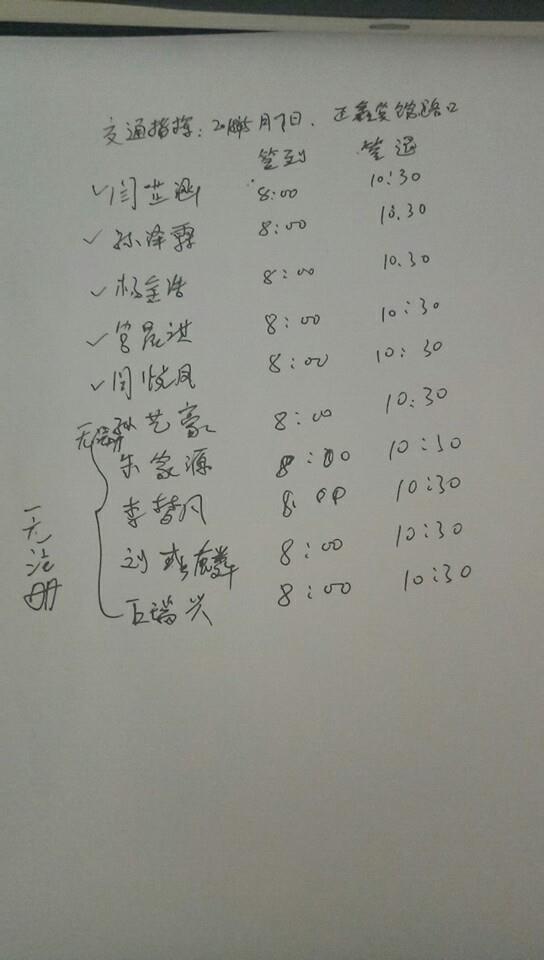 交通指挥：2018年5月7日、正鑫宾馆路口
签到 签退
✓闫芷涵 8:00 10:30
✓孙泽霖 8:00 10.30
✓杨金浩 8:00 10.30
✓管晁洪 8:00 10:30
✓闫 凤 8:00 10:30
艺豪 8:00 10:30
朱家源 8:00 10:30
李替凡 8:00 10:30
刘 麟 8:00 10:30
瑞兴 8:00 10:30
无注册